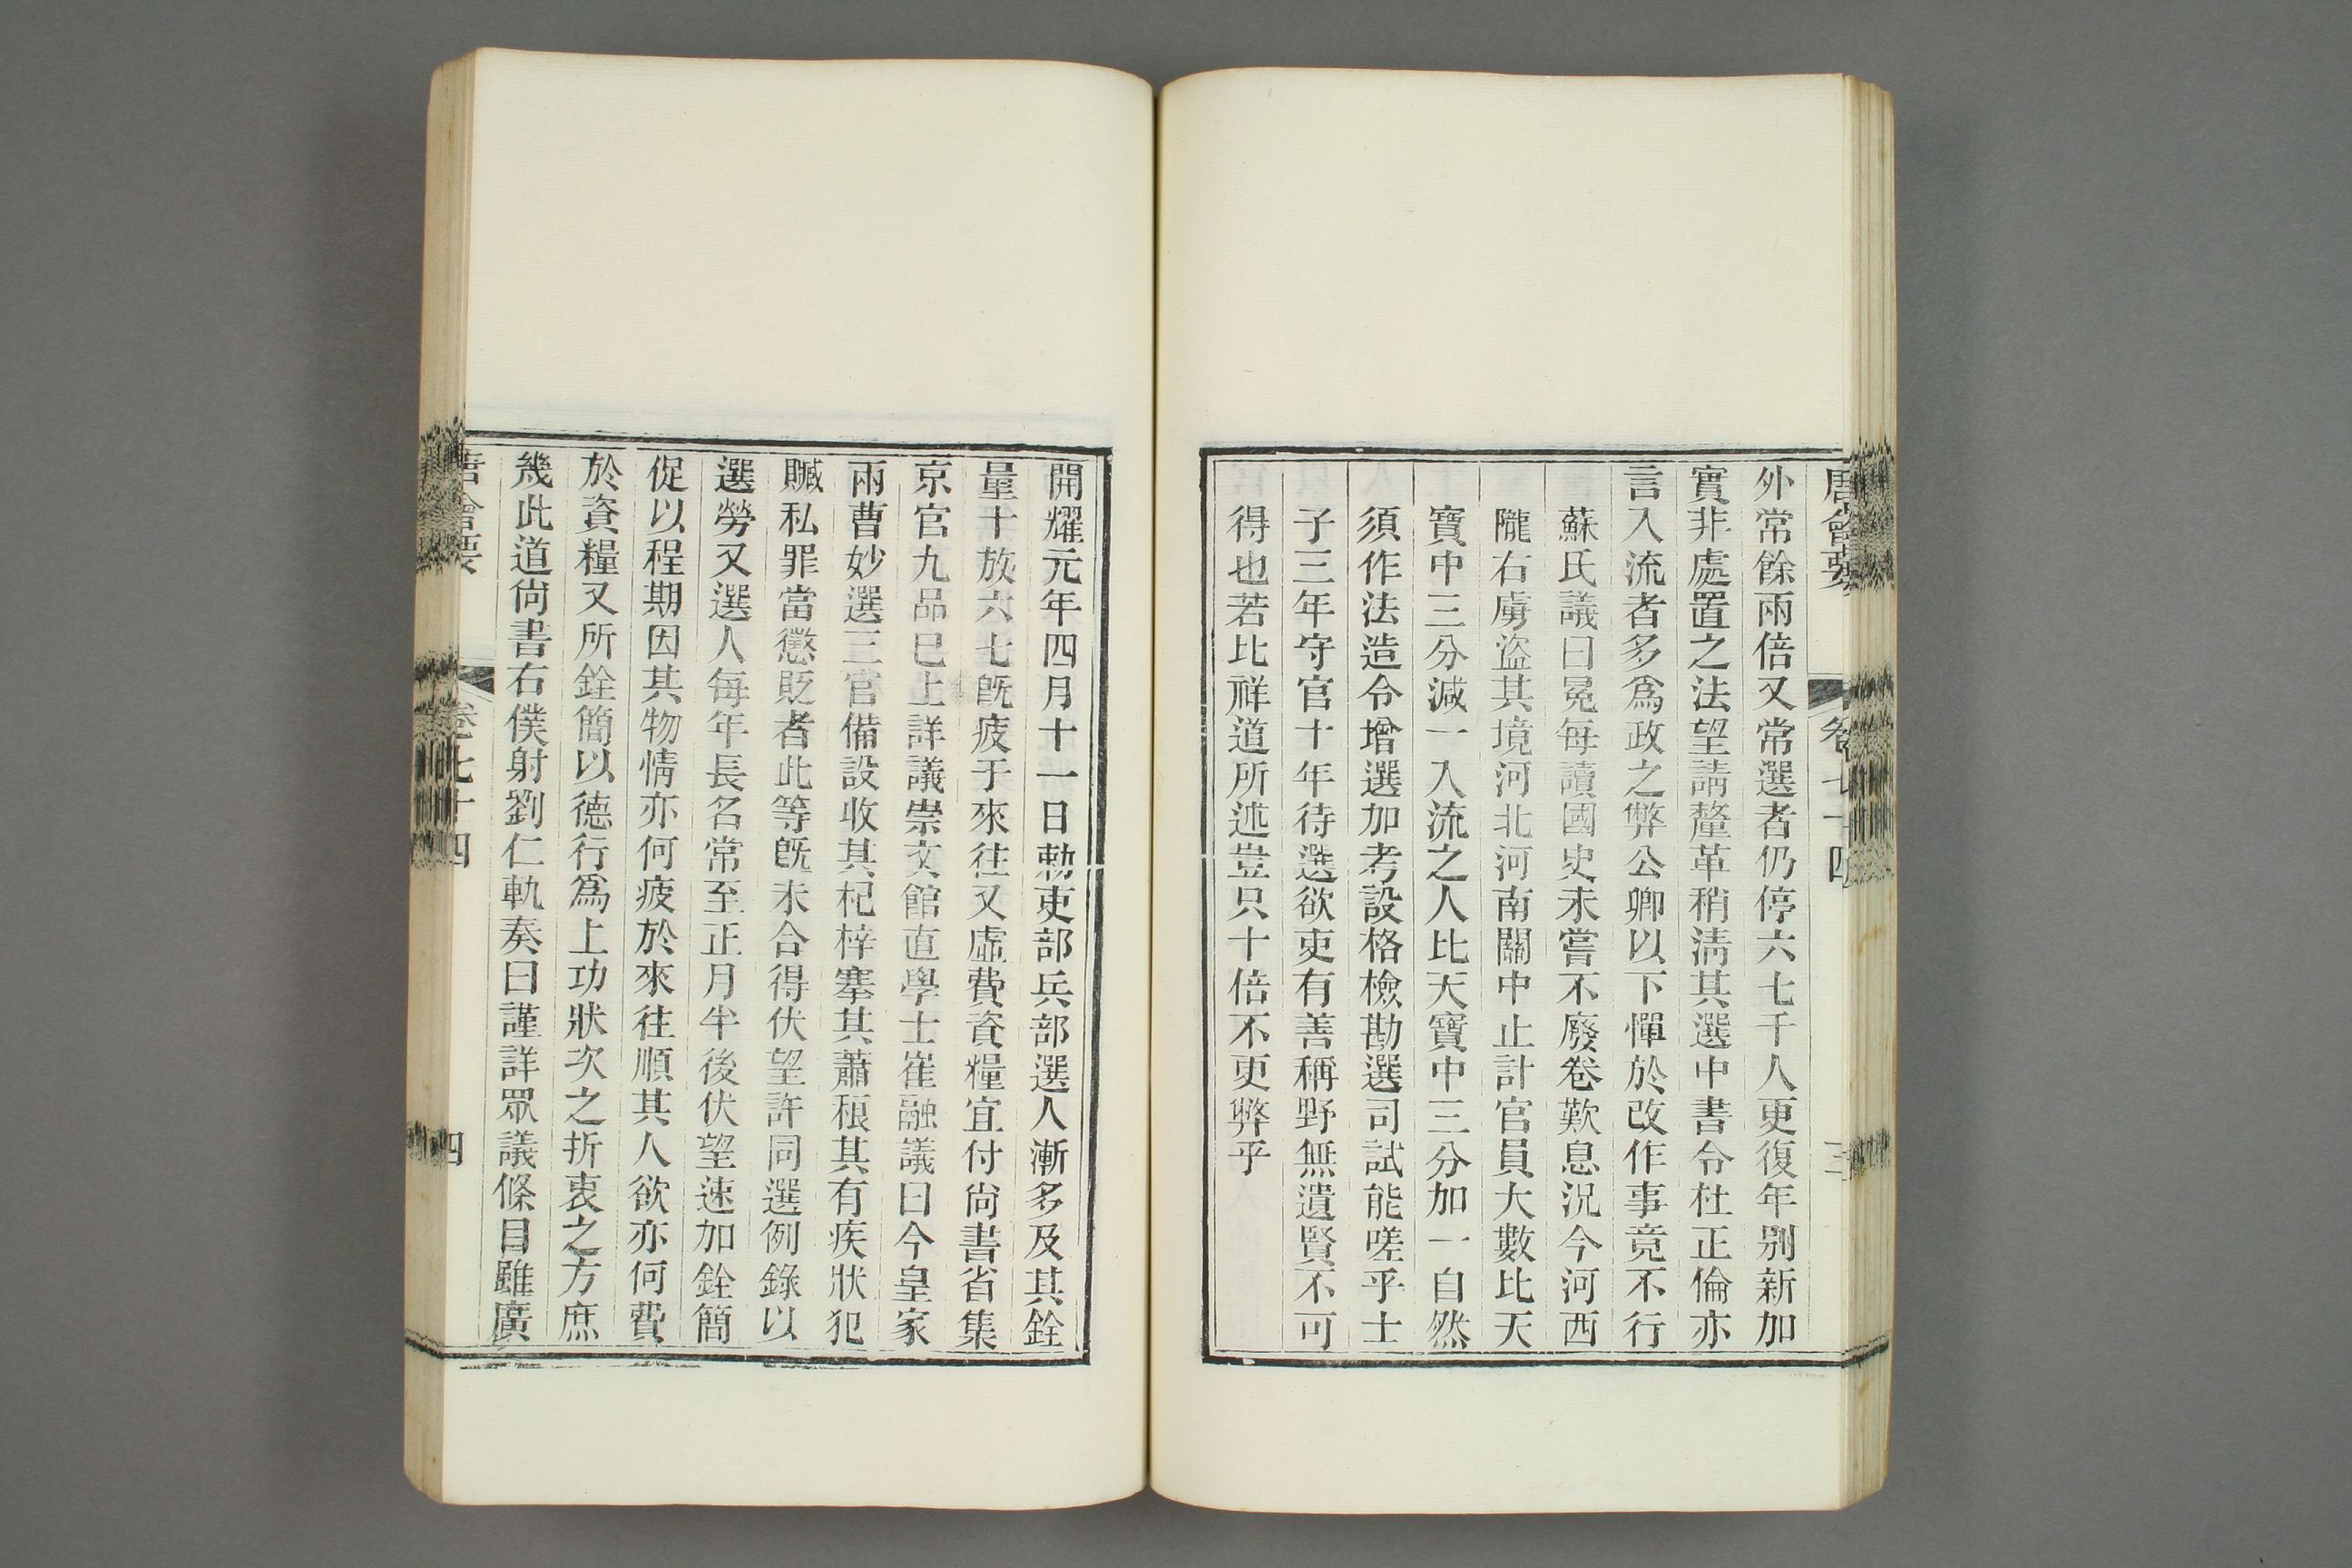 唐會要 卷七十四 三
外常餘兩倍又常選者仍停六七千人更復年別新加
實非處置之法望請釐革稍清其選中書令杜正倫亦
言入流者多爲政之弊公卿以下憚於改作事竟不行
蘇氏議曰冕每讀國史未嘗不廢卷歎息況今河西
隴右虜盜其境河北河南關中止計官員大數比天
寶中三分減一入流之人比天寶中三分加一自然
須作法造令增選加考設格檢勘選司試能嗟乎士
子三年守官十年待選欲吏有善稱野無遺賢不可
得也若比祥道所述豈只十倍不更弊乎
開耀元年四月十一日勅吏部兵部選人漸多及其銓
量十放六七旣疲于來往又虛費資糧宜付尙書省集
京官九品已上詳議崇文館直學士崔融議曰今皇家
兩曹妙選三官備設收其杞梓搴其蕭稂其有疾狀犯
贓私罪當懲貶者此等旣未合得伏望許同選例錄以
選勞又選人每年長名常至正月半後伏望速加銓簡
促以程期因其物情亦何疲於來往順其人欲亦何費
於資糧又所銓簡以德行爲上功狀次之折衷之方庶
幾此道尙書右僕射劉仁軌奏曰謹詳眾議條目雖廣
唐會要 卷七十四 四